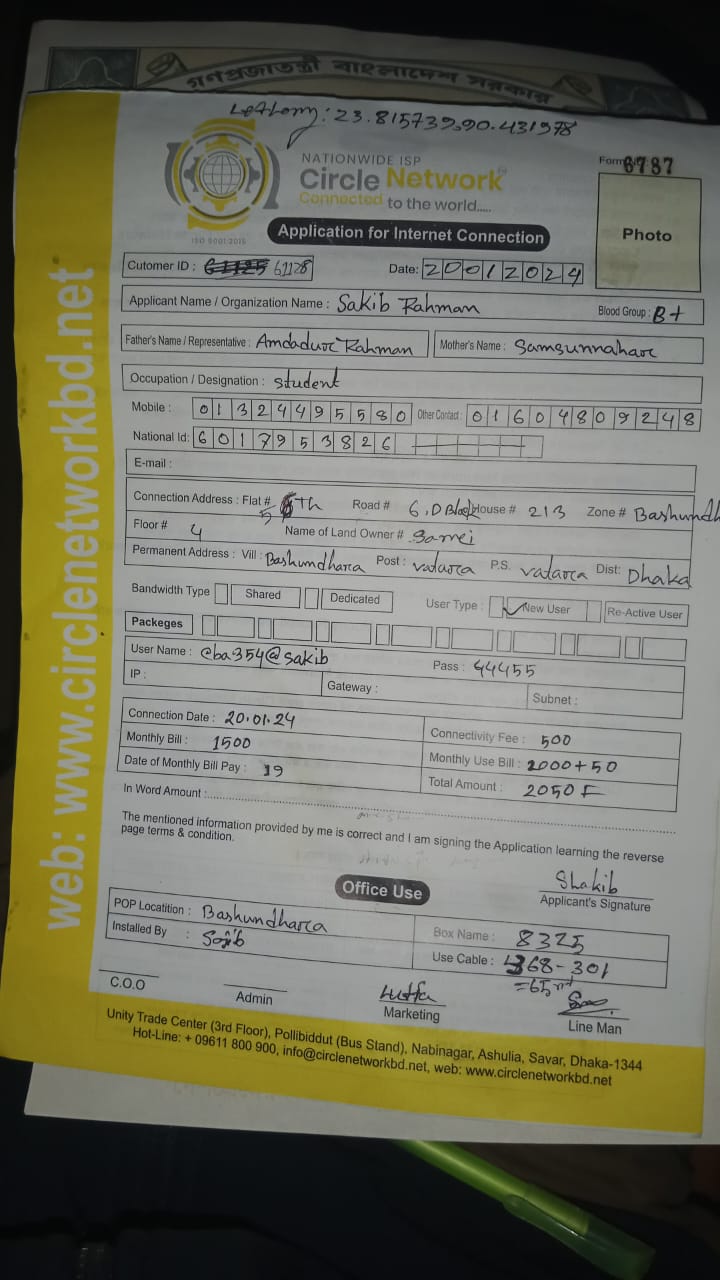 গণপ্রজাতন্ত্রী বাংলাদেশ সরকার
23.815739,90.431978
NATIONWIDE ISP
Form 6787
Circle Network
Connected to the world.....
ISO 9001:2015
Application for Internet Connection
Photo
Cutomer ID : 61128 Date: 20012024
Applicant Name / Organization Name : Sakib Rahman Blood Group : B+
Father's Name / Representative : Amdadur Rahman Mother's Name : Samsunnahar
Occupation / Designation : student
Mobile : 01324495580 Other Contact : 01604809248
National Id: 6017953826
E-mail :
Connection Address : Flat # 5th Road # 6, D Block House # 213 Zone # Bashundh
Floor # 4 Name of Land Owner #
Permanent Address : Vill : Bashundhara Post : vatara P.S. vatara Dist: Dhaka
Bandwidth Type Shared Dedicated User Type : New User Re-Active User
Packeges
User Name : cba354@sakib Pass : 44455
IP : Gateway : Subnet :
Connection Date : 20.01.24 Connectivity Fee : 500
Monthly Bill : 1500 Monthly Use Bill : 2000+50
Date of Monthly Bill Pay : 19 Total Amount : 2050
In Word Amount :
The mentioned information provided by me is correct and I am signing the Application learning the reverse
page terms & condition.
Shakib
Office Use
Applicant's Signature
POP Locatition : Bashundhara Box Name : 8325
Installed By : Sojib Use Cable : 368-301
=65 mt
C.O.O Admin Marketing Line Man
Unity Trade Center (3rd Floor), Pollibiddut (Bus Stand), Nabinagar, Ashulia, Savar, Dhaka-1344
Hot-Line: + 09611 800 900, info@circlenetworkbd.net, web: www.circlenetworkbd.net
web: www.circlenetworkbd.net